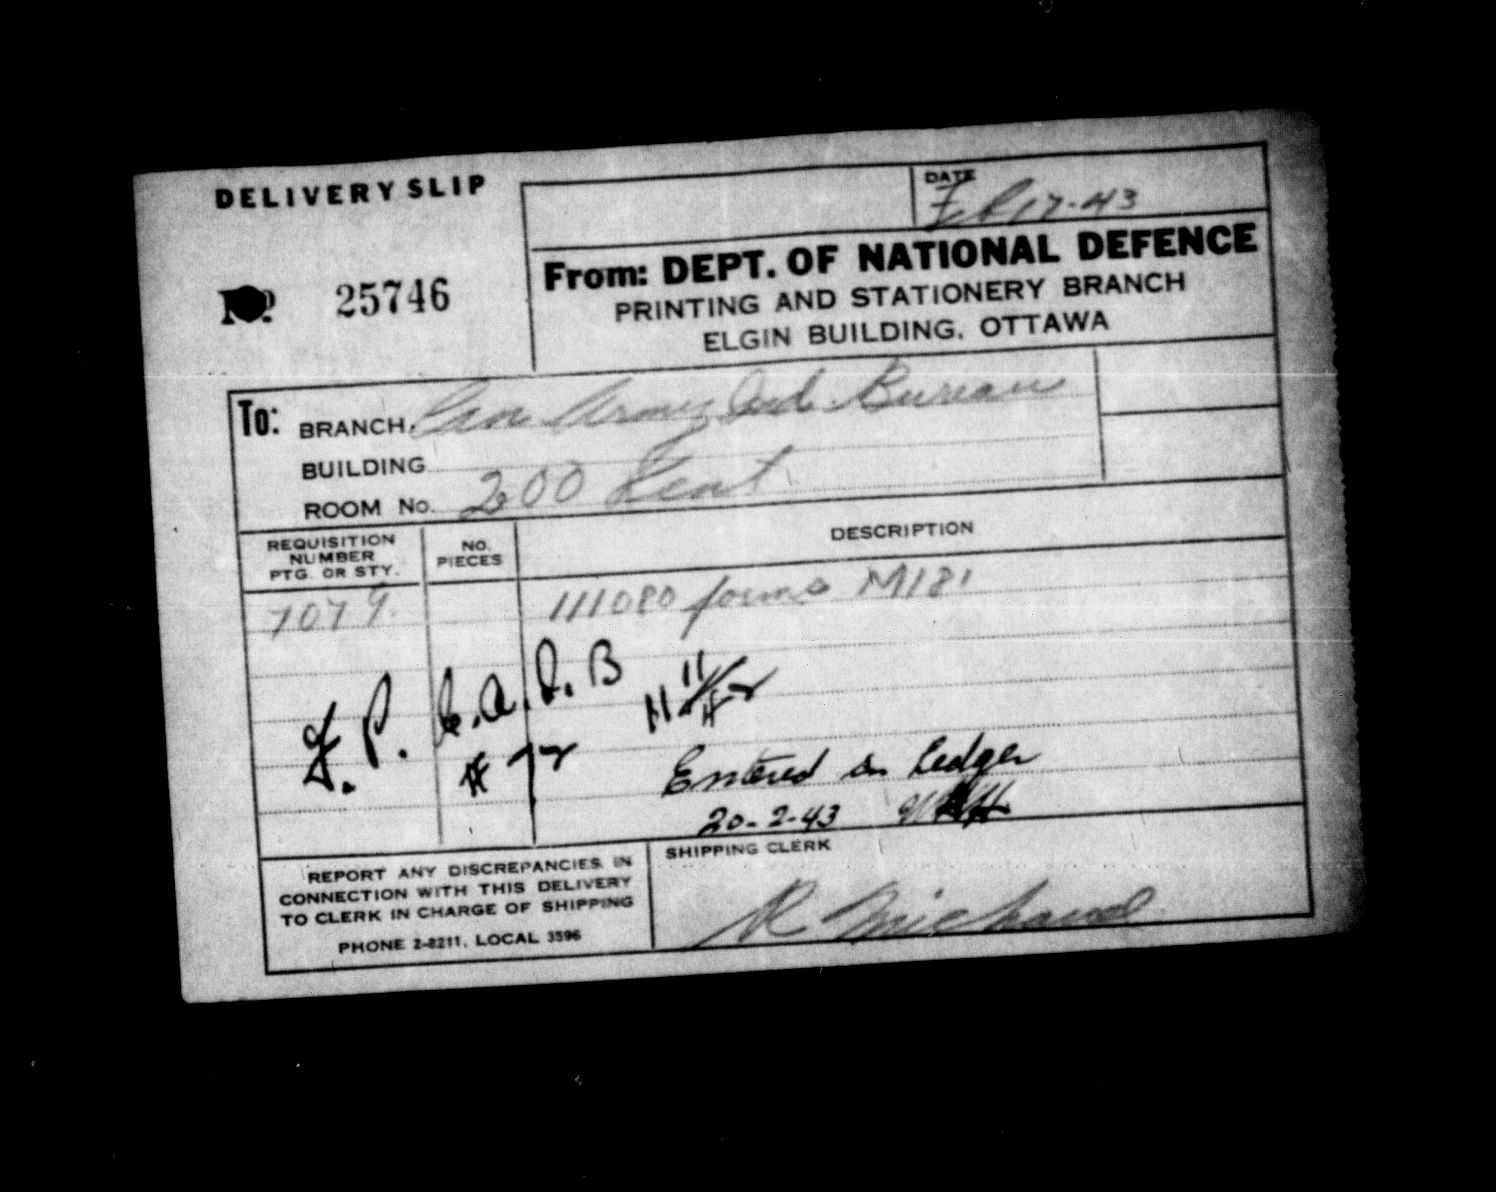 DELIVERY SLIP
DATE
Feb 17-43
No 25746
From: DEPT. OF NATIONAL DEFENCE
PRINTING AND STATIONERY BRANCH
ELGIN BUILDING, OTTAWA
To: BRANCH. Can Army Ind. Bureau
BUILDING
ROOM No. 200 Kent
REQUISITION NUMBER PTG. OR STY.
NO. PIECES
DESCRIPTION
7079. 111080 forms M181
F. P. C.A.I.B
Entered in Ledger
20-2-43
REPORT ANY DISCREPANCIES IN
CONNECTION WITH THIS DELIVERY
TO CLERK IN CHARGE OF SHIPPING
PHONE 2-8211, LOCAL 3596
SHIPPING CLERK
R Michaud